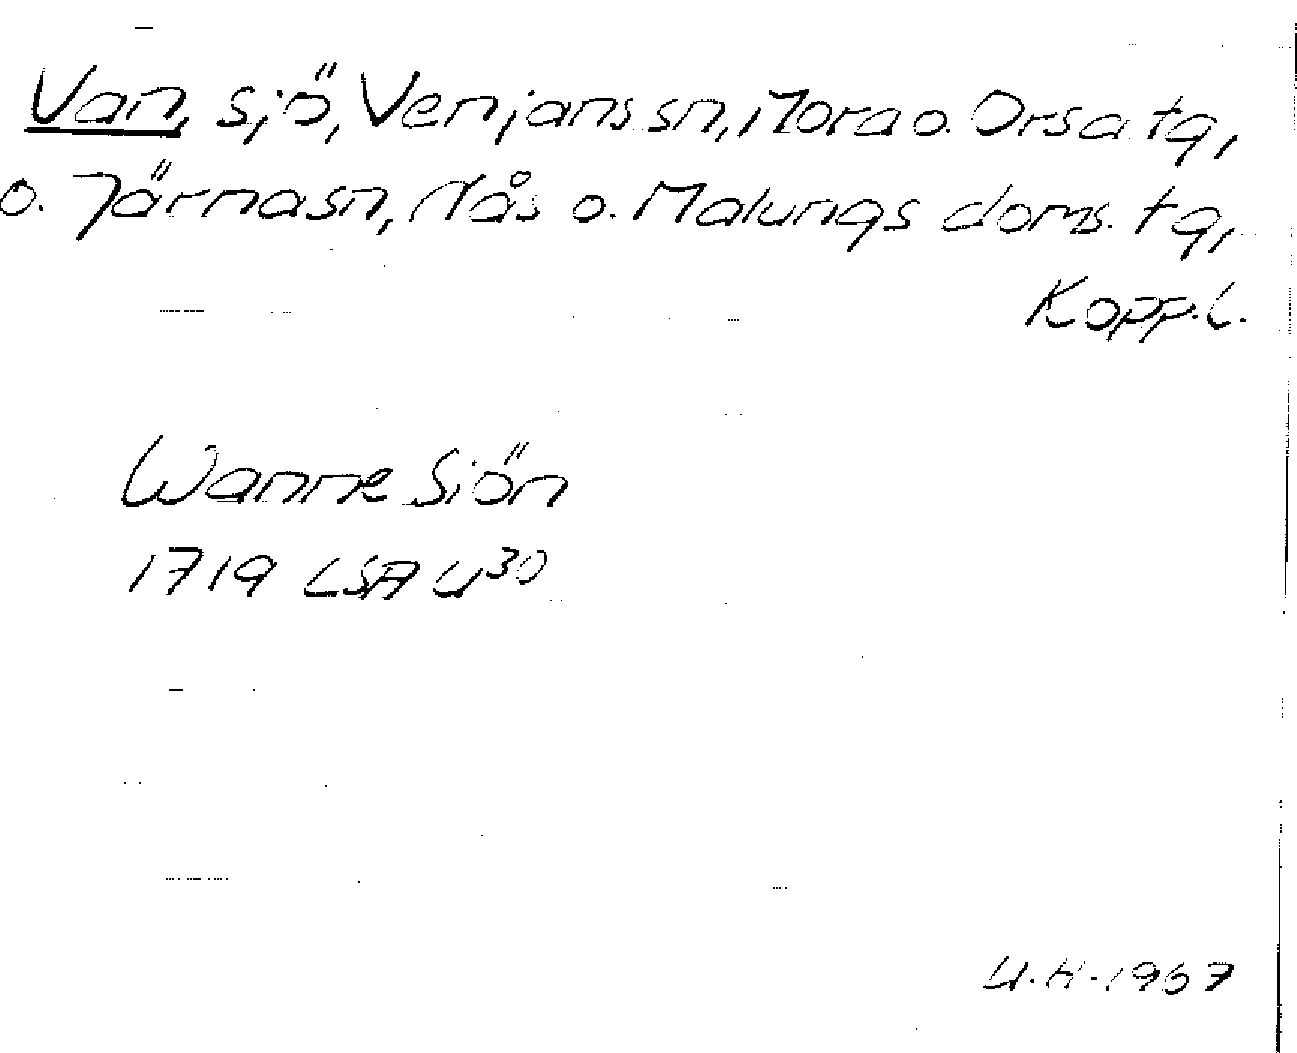 Van, sjö, Venjans sn, Mora o. Orsa tg,
o. Järna sn, Nås o. Malungs doms. tg,
Kopp. l.
Wanne Siön
1719 LSA U30
U.H. 1967